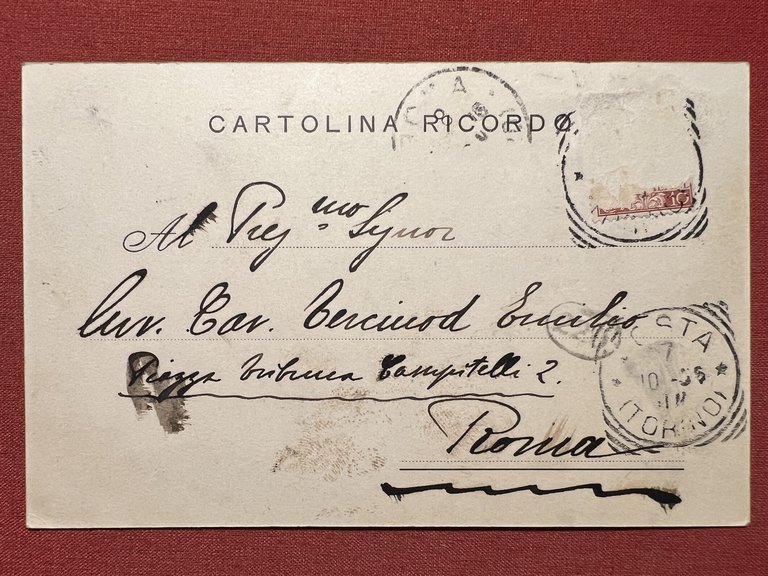 CARTOLINA RICORDO
ROMA
8
Al Preg.mo Signor
Avv. Cav. Vercinod Emilio
Piazza Tribuna Campitelli 2.
Roma
AOSTA
7
10
(TORINO)